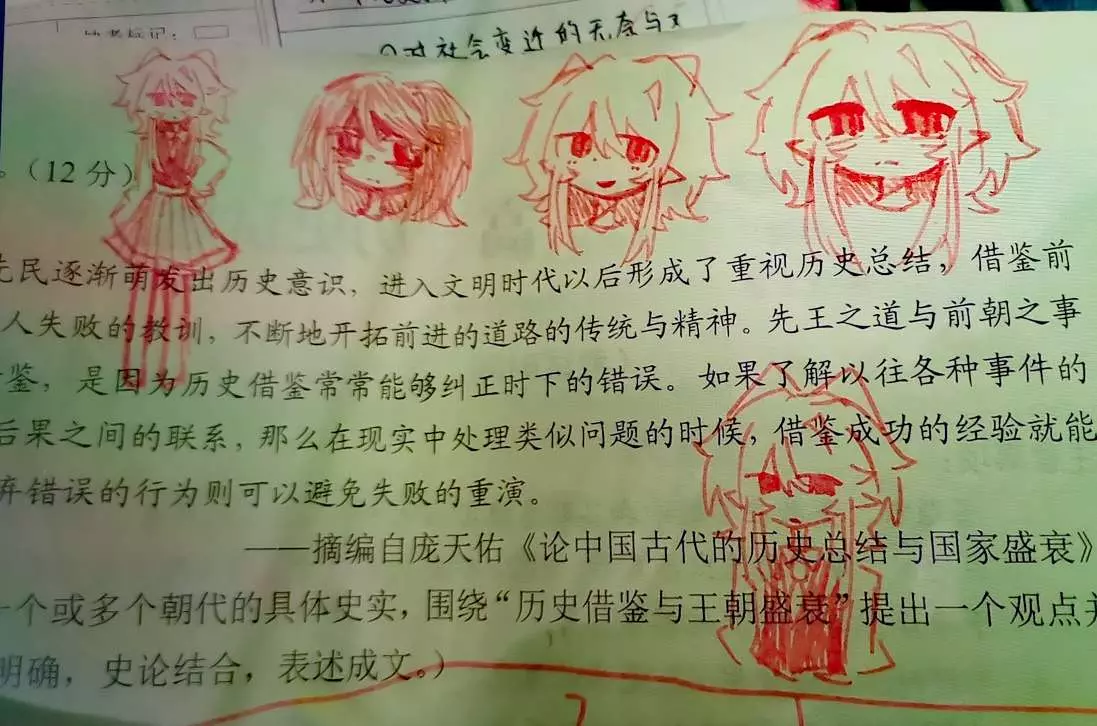 对社会变迁的
。（12分）
先民逐渐萌发出历史意识，进入文明时代以后形成了重视历史总结，借鉴前
人失败的教训，不断地开拓前进的道路的传统与精神。先王之道与前朝之事
鉴，是因为历史借鉴常常能够纠正时下的错误。如果了解以往各种事件的
后果之间的联系，那么在现实中处理类似问题的时候，借鉴成功的经验就能
弃错误的行为则可以避免失败的重演。
——摘编自庞天佑《论中国古代的历史总结与国家盛衰》
一个或多个朝代的具体史实，围绕“历史借鉴与王朝盛衰”提出一个观点并
明确，史论结合，表述成文。）